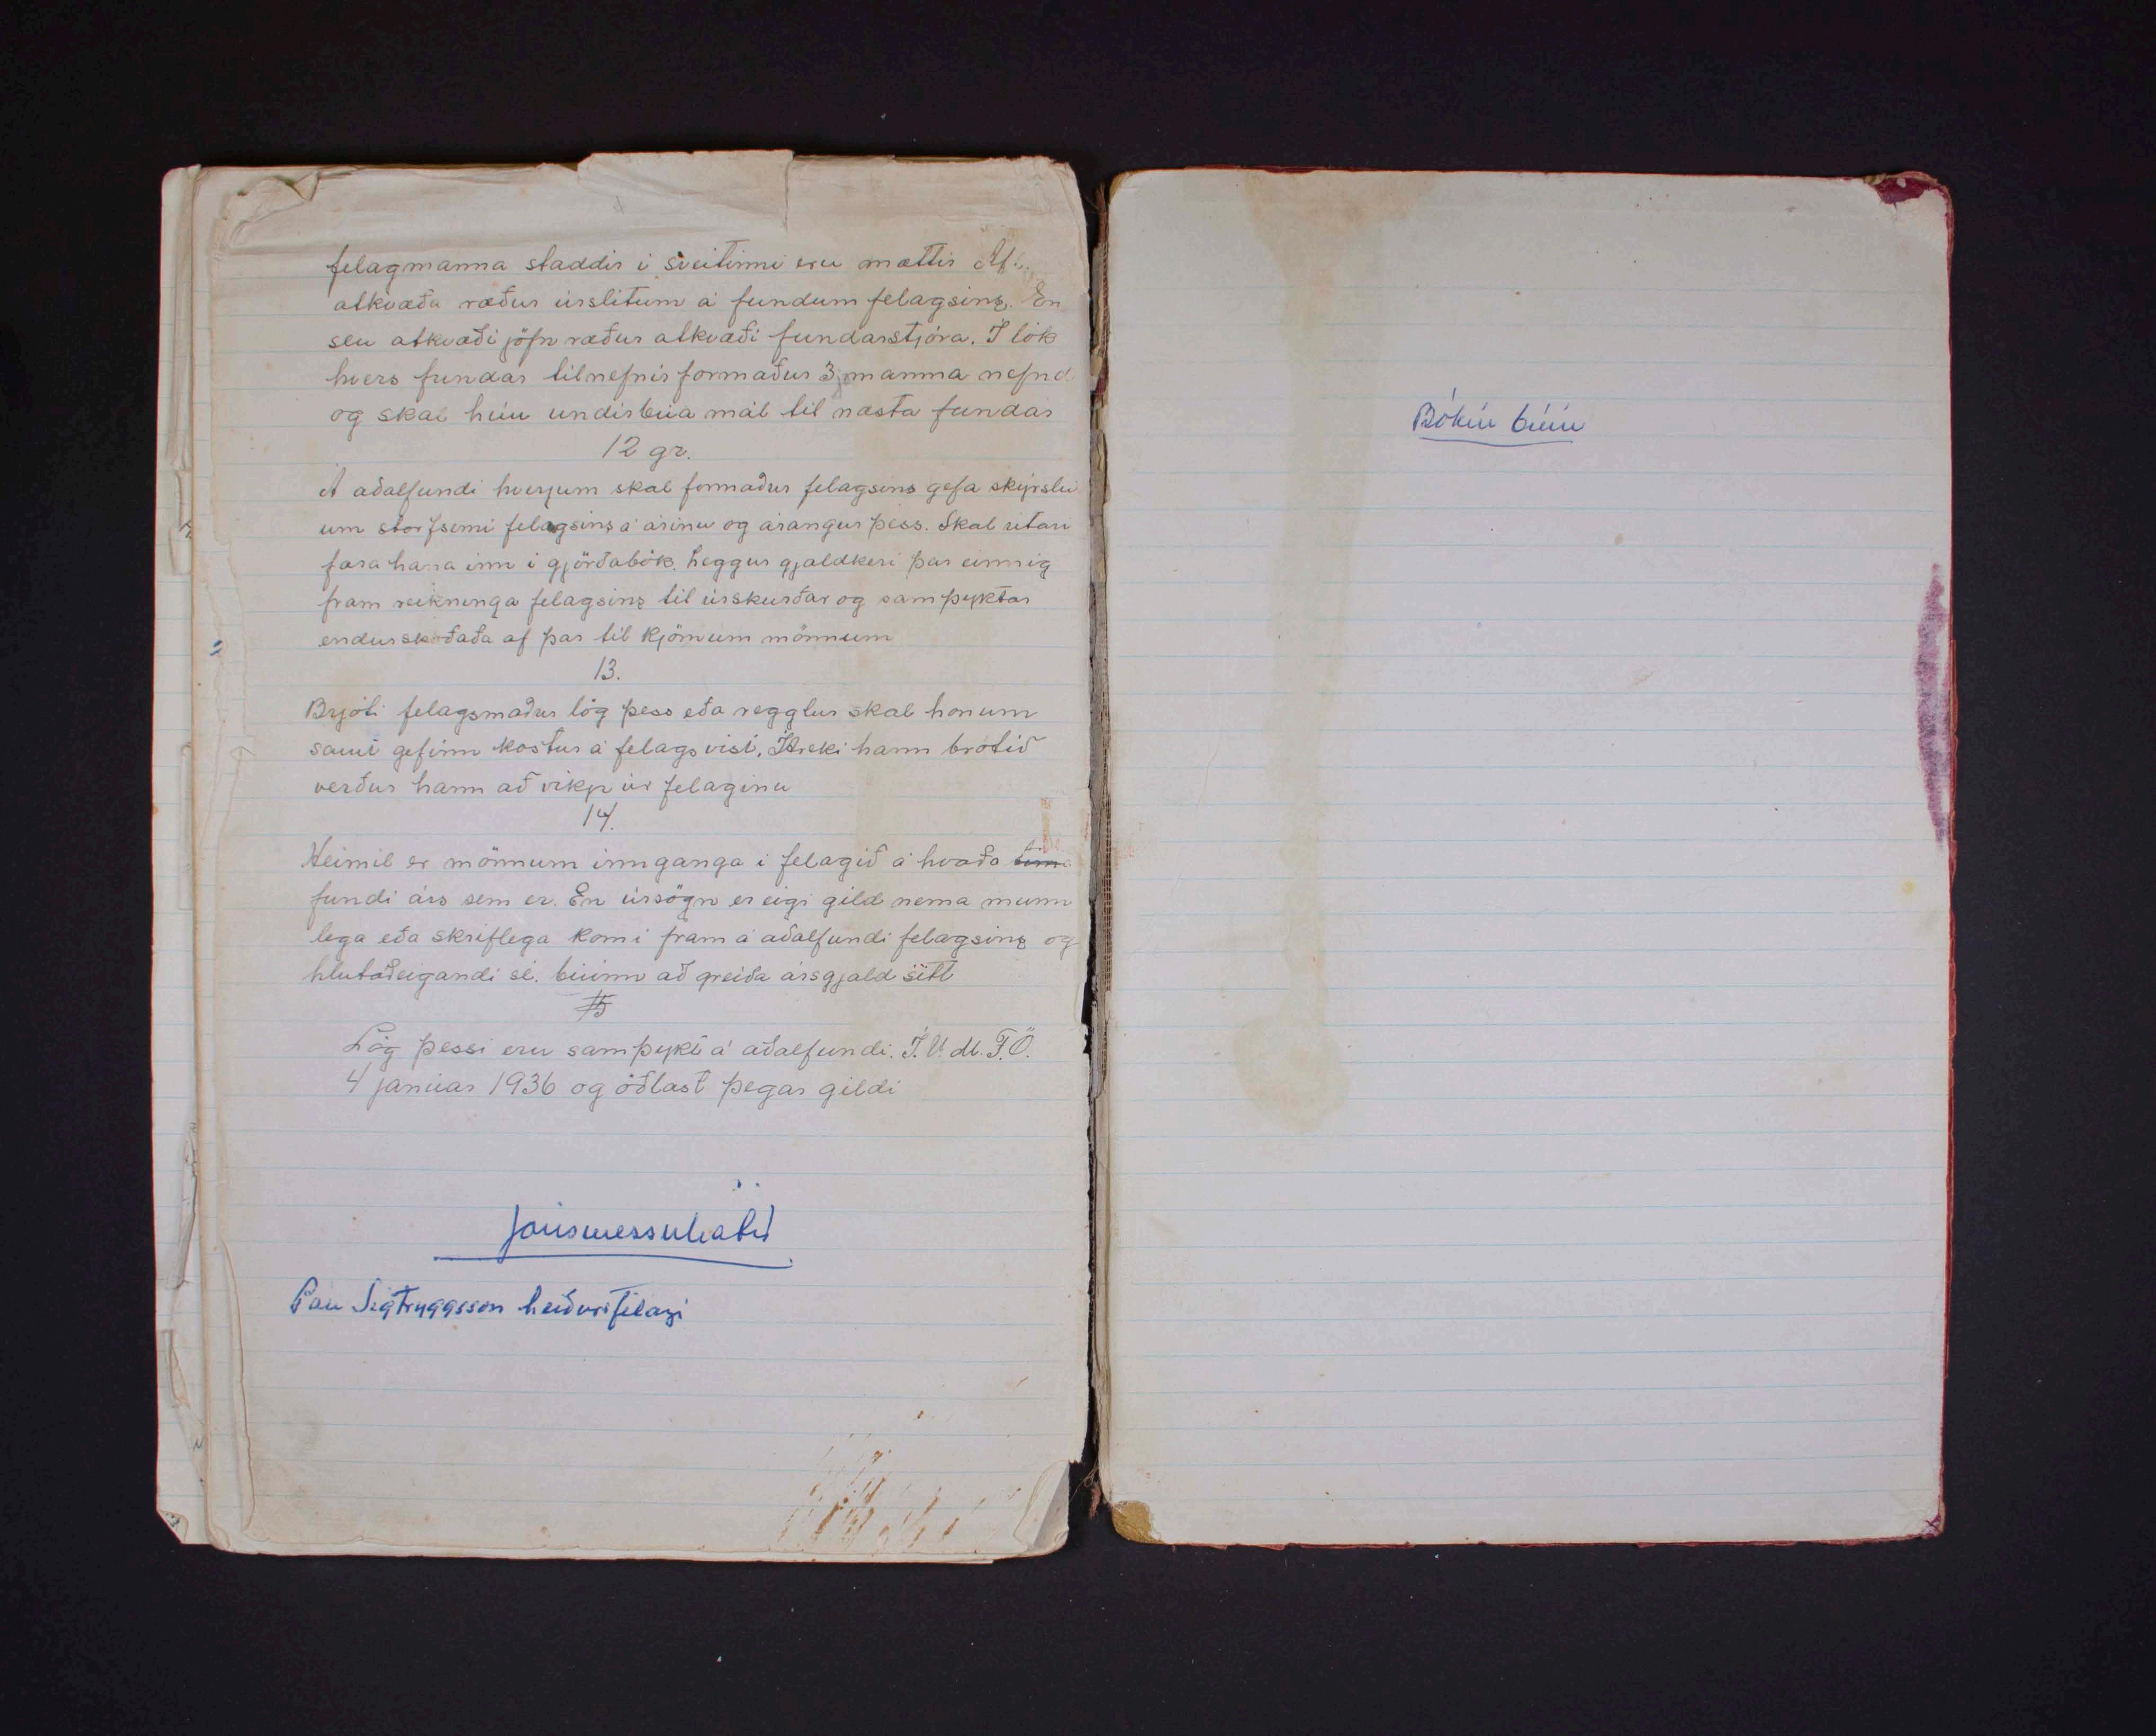 felagmanna staddir i sveitinni eru mættir Afl
atkvæða ræður úrslitum á fundum felagsins. En
seu atkvæði jöfn ræður atkvæði fundarstjóra. Í lok
hvers fundar tilnefnir formaður 3 manna nefnd
og skal hún undirbúa mál til næsta fundar
12 gr.
Á aðalfundi hverjum skal formaður felagsins gefa skýrslu
um störfsemi felagsins á árinu og árangur þess. Skal ritari
færa hana inn i gjörðabók. Leggur gjaldkeri þar einnig
fram reikninga felagsins til úrskurðar og samþyktar
endurskoðaða af þar til kjörnum mönnum
13.
Brjóti felagsmaður lög þess eða regglur skal honum
samt gefinn kostur á felagsvist. Ítreki hann brotið
verður hann að vikja úr felaginu
14.
Heimil er mönnum innganga i felagið á hvaða tima
fundi árs sem er. En úrsögn er eigi gild nema munn
lega eða skriflega komi fram á aðalfundi felagsins og
hlutaðeigandi sé búinn að greiða ársgjald sitt
15
Lög þessi eru samþykt á aðalfundi. Í.U.M.F.Ö.
4 janúar 1936 og öðlast þegar gildi
Jónsmessuhátíð
Pau Sigtryggsson heiðursfélagi
Bókin búin